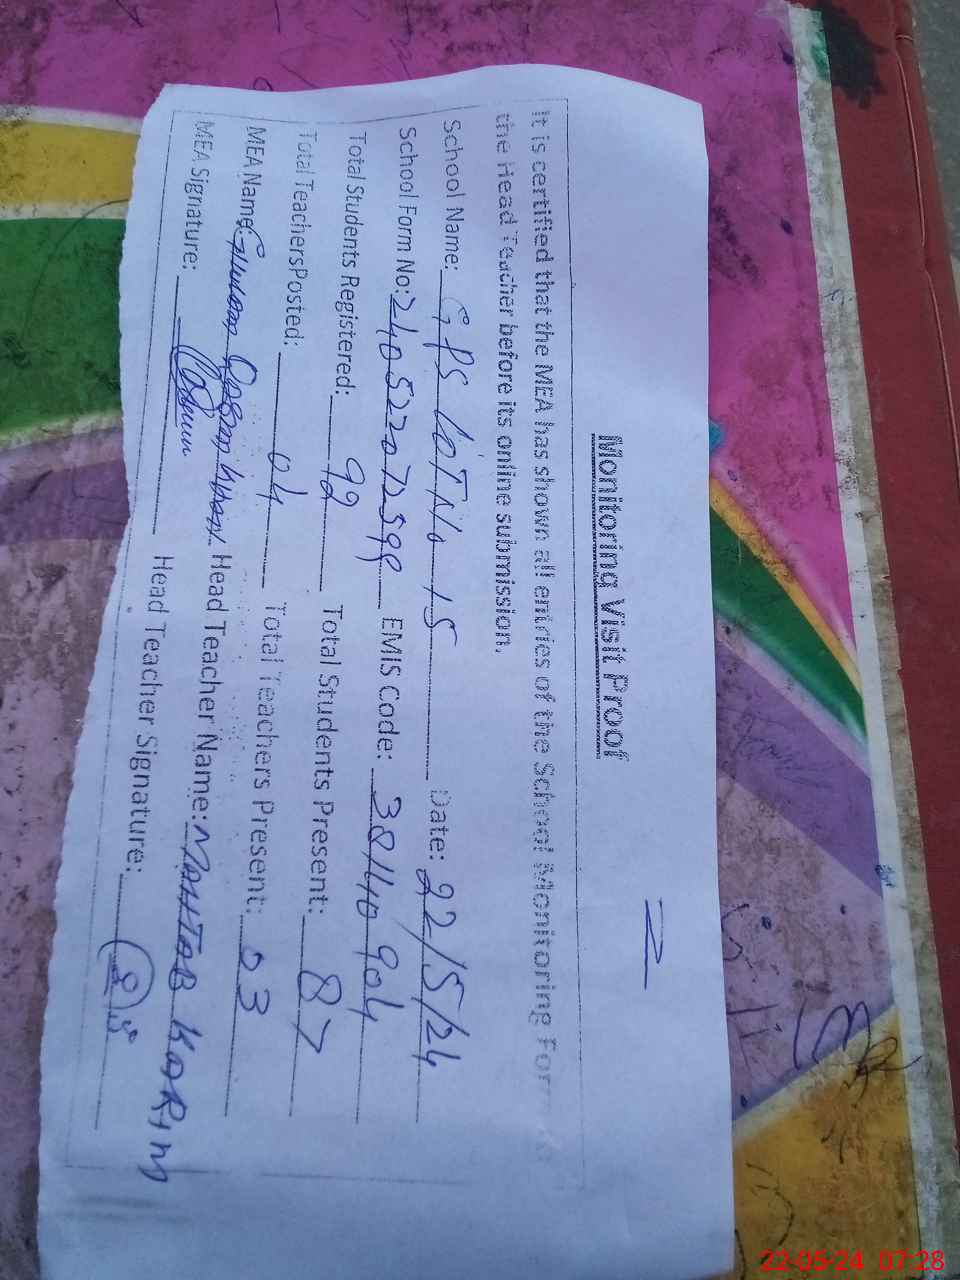 Monitoring Visit Proof
It is certified that the MEA has shown all entries of the School Monitoring Form to
the Head Teacher before its online submission.
School Name: GPS LOT No 15 Date: 22/5/24
School Form No: 240522072598 EMIS Code: 38140904
Total Students Registered: 92 Total Students Present: 87
Total Teachers Posted: 04 Total Teachers Present: 03
MEA Name: Head Teacher Name: MAHTAB KARIM
MEA Signature: Head Teacher Signature:
22-05-24 07:28